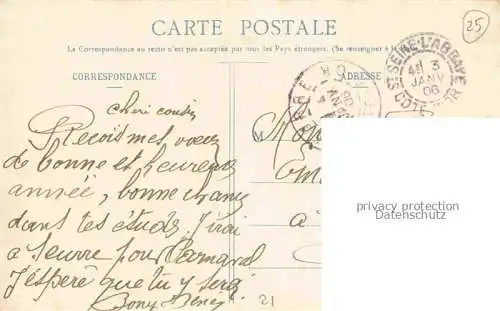 25
CARTE POSTALE
La Correspondance au recto n'est pas acceptée par tous les Pays étrangers. (Se renseigner à
CORRESPONDANCE
ADRESSE
ST SEINE L'ABBAYE
3
JANV
06
COTE D'OR
cheri cousin
Reçois mes vœux
de bonne et heureuse
année, bonne chance
dans tes études. J'irai
à Seurre pour
J'espère que tu y seras
à
21
privacy protection
Datenschutz